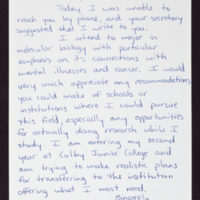 Today I was unable to
reach you by phone, and your secretary
suggested that I write to you.
I intend to major in
molecular biology with particular
emphasis on its connections with
mental illnesses and cancer. I would
very much appreciate any recommendations
you could make of schools or
institutions where I could pursue
this field, especially any opportunities
for actually doing research while I
study. I am entering my second
year at Colby Junior College and
am trying to make realistic plans
for transferring to the institution
offering what I most need.
Sincerely